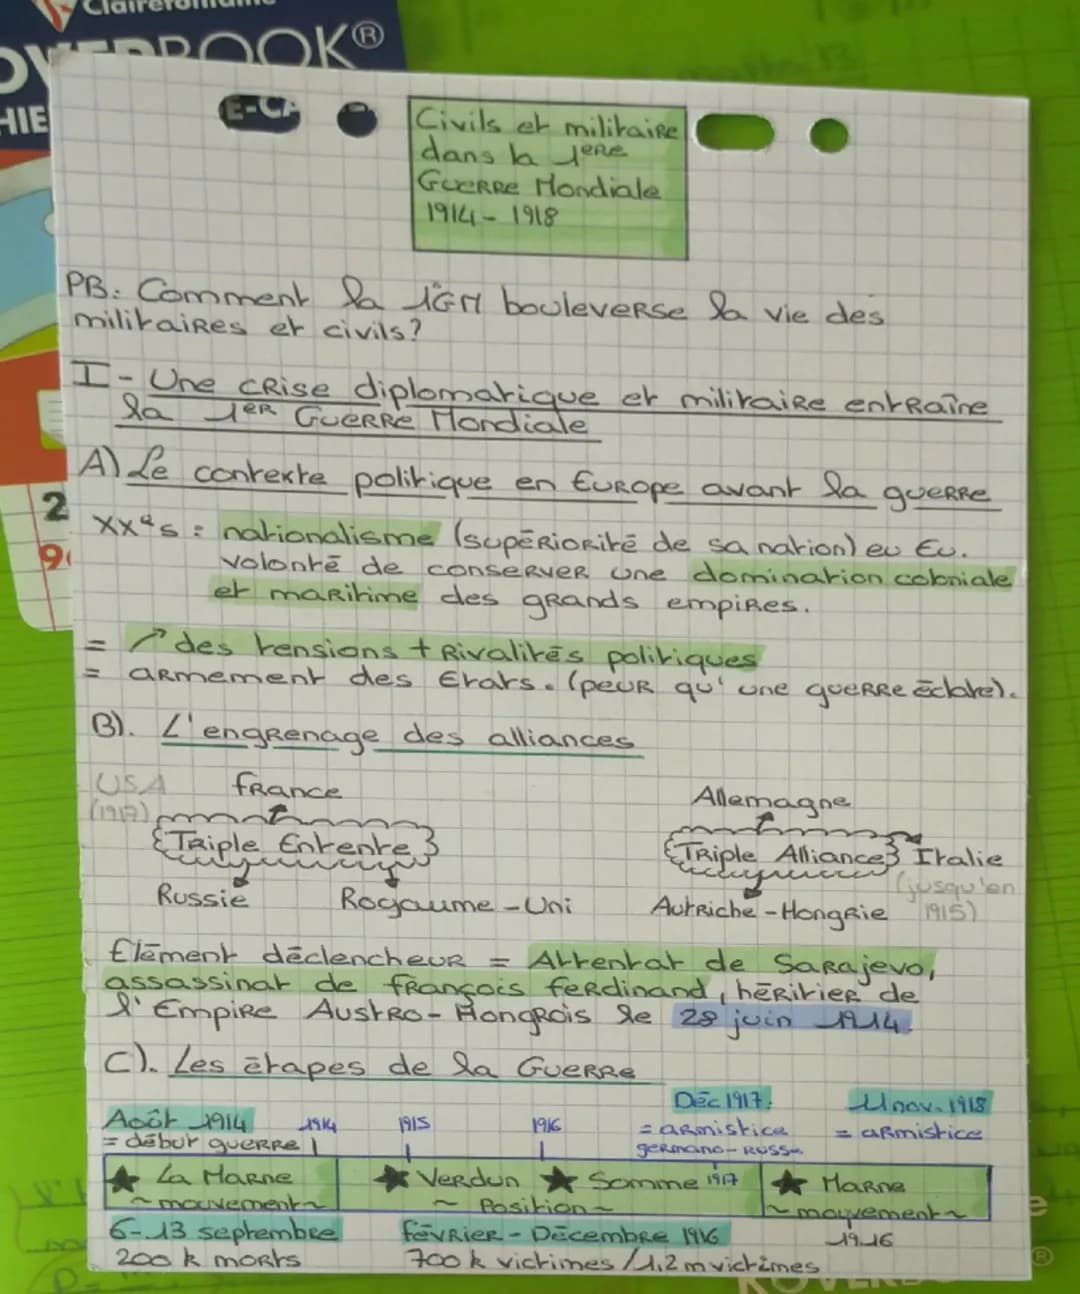 OVERBOOK®
E-CA
Civils et militaire
dans la 1ere
Guerre Mondiale
1914-1918
PB: Comment la 1GM bouleverse la vie des
militaires et civils?
I - Une crise diplomatique et militaire entraîne
la 1er Guerre Mondiale
A) Le contexte politique en Europe avant la guerre
XXe s : nationalisme (supériorité de sa nation) eu Eu.
volonté de conserver une domination coloniale
et maritime des grands empires.
= ↗ des tensions + rivalités politiques
= armement des Etats. (peur qu'une guerre éclate).
B). L'engrenage des alliances
USA
(1917)
France
Allemagne
Triple Entente
Triple Alliance
Italie
(jusqu'en
1915)
Russie
Royaume-Uni
Autriche-Hongrie
Elément déclencheur = Attentat de Sarajevo,
assassinat de François Ferdinand, héritier de
l'Empire Austro-Hongrois le 28 juin 1914.
C). Les étapes de la Guerre
Août 1914
= début guerre
1914
1915
1916
Déc 1917:
= armistice
germano-russe
11 nov. 1918
= armistice
★ La Marne
~mouvement~
★ Verdun ★ Somme 1917
~ Position ~
★ Marne
~mouvement~
6-13 septembre
200 k morts
Février - Décembre 1916
700 k victimes / 1,2 m victimes
1916